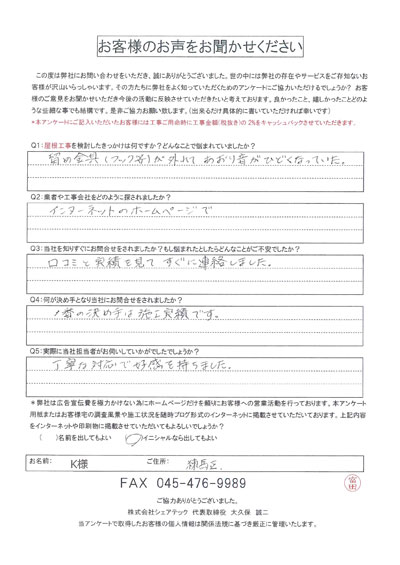 お客様のお声をお聞かせください
この度は弊社にお問い合わせをいただき、誠にありがとうございました。世の中には弊社の存在やサービスをご存知ないお
客様が沢山いらっしゃいます。その方たちに弊社をよく知っていただくためのアンケートにご協力いただけるでしょうか？ お客
様のご意見をお聞かせいただき今後の活動に反映させていただきたいと考えております。良かったこと、嬉しかったことどのよ
うな些細な事でも結構です。是非ご協力お願い致します。(出来るだけ具体的に書いていただければ幸いです)
*本アンケートにご記入いただいたお客様には工事ご用命時に工事金額(税抜き)の2%をキャッシュバックさせていただきます。
Q1：屋根工事を検討したきっかけは何ですか？どんなことで悩まれていましたか？
留め金具(フック等)が外れて おり音がひどくなっていた。
Q2：業者や工事会社をどのように探されましたか？
インターネットのホームページで
Q3：当社を知りすぐにお問合せをされましたか？もし悩まれたとしたらどんなことがご不安でしたか？
口コミと実績を見て すぐに連絡しました。
Q4：何が決め手となり当社にお問合せをされましたか？
1番の決め手は施工実績です。
Q5：実際に当社担当者がお伺いしていかがでしたでしょうか？
丁寧な対応で好感を持ちました。
*弊社は広告宣伝費を極力かけない為にホームページだけを頼りにお客様への営業活動を行っております。本アンケート
用紙またはお客様宅の調査風景や施工状況を随時ブログ形式のインターネットに掲載させていただいております。上記内容
をインターネットや印刷物に掲載させていただいてもよろしいでしょうか？
( )名前を出してもよい ( )イニシャルなら出してもよい
お名前： K様 ご住所： 練馬区
FAX 045-476-9989
ご協力ありがとうございました。
株式会社シェアテック 代表取締役 大久保 誠二
当アンケートで取得したお客様の個人情報は関係法規に基づき厳正に管理いたします。